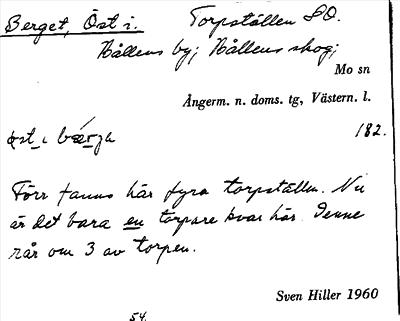 Berget, Öst i. Torpställen SO.
Hållens by; Hållens skog;
Mo sn
Ångerm. n. doms. tg, Västern. l.
öst i bærja 182.
Förr fanns här fyra torpställen. Nu
är det bara en torpare kvar här. Denne
rår om 3 av torpen.
Sven Hiller 1960
54.